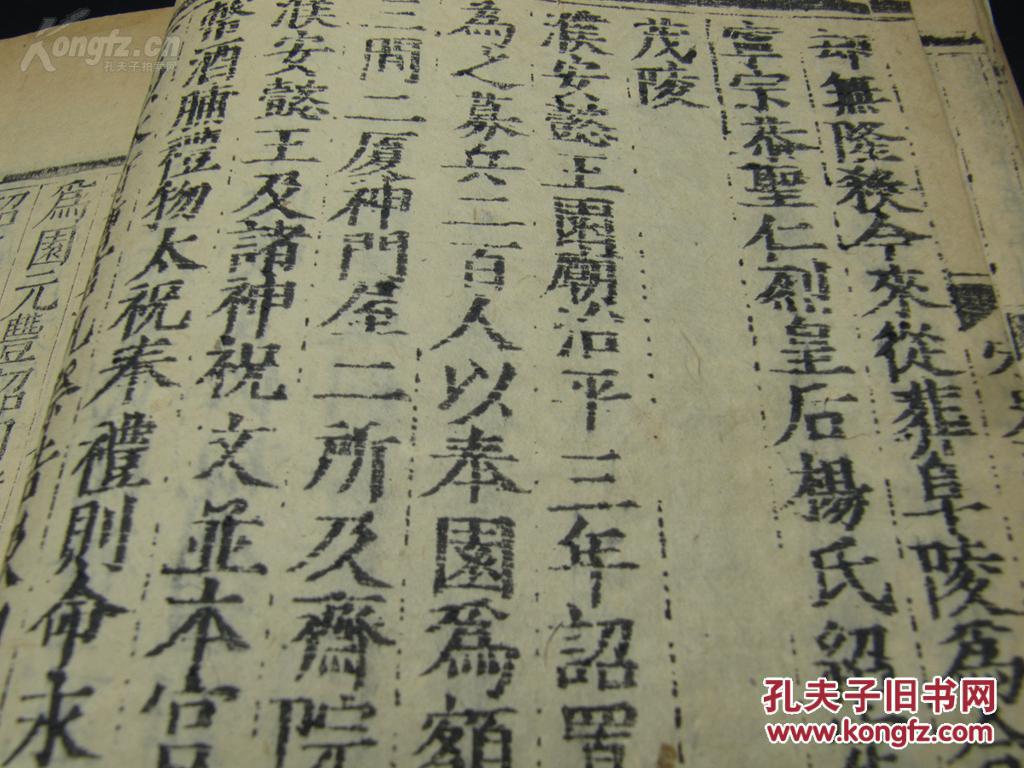 却無隆殺今來從葬阜陵為
寧宗恭聖仁烈皇后楊氏紹
茂陵
濮安懿王園廟治平三年詔置
為之募兵二百人以奉園爲額
三間二厦神門屋二所及齋院
濮安懿王及諸神祝文並本宮
幣酒脯物太祝奉禮則命
爲園元豐詔
Kongfz.cn
孔夫子拍卖网
孔夫子旧书网
www.kongfz.com